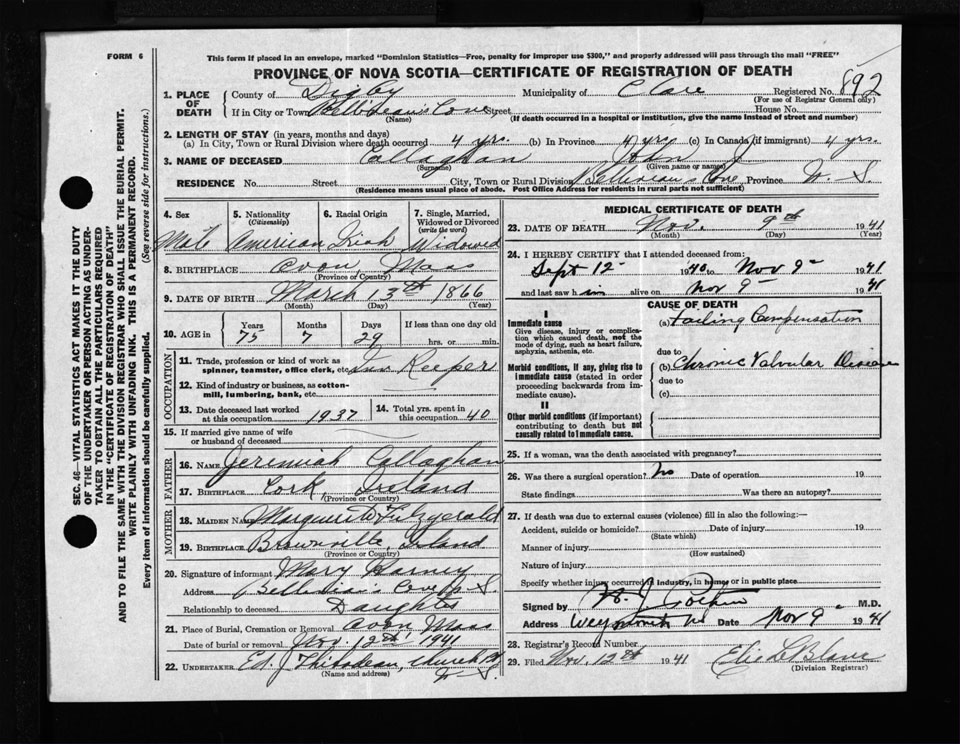 FORM 6
This form if placed in an envelope, marked "Dominion Statistics—Free, penalty for improper use $300," and properly addressed will pass through the mail "FREE"
PROVINCE OF NOVA SCOTIA—CERTIFICATE OF REGISTRATION OF DEATH
SEC. 46—VITAL STATISTICS ACT MAKES IT THE DUTY
OF THE UNDERTAKER OR PERSON ACTING AS UNDER-
TAKER TO OBTAIN ALL THE PARTICULARS REQUIRED
IN THE "CERTIFICATE OF REGISTRATION OF DEATH"
AND TO FILE THE SAME WITH THE DIVISION REGISTRAR WHO SHALL ISSUE THE BURIAL PERMIT.
WRITE PLAINLY WITH UNFADING INK. THIS IS A PERMANENT RECORD.
Every item of information should be carefully supplied. (See reverse side for instructions.)
1. PLACE OF DEATH County of Digby Municipality of Clare Registered No. 892
(For use of Registrar General only)
If in City or Town Belliveau's Cove Street House No.
(Name) (If death occurred in a hospital or institution, give the name instead of street and number)
2. LENGTH OF STAY (in years, months and days)
(a) In City, Town or Rural Division where death occurred 4 yrs. (b) In Province 4 yrs. (c) In Canada (if immigrant) 4 yrs.
3. NAME OF DECEASED Callaghan J
(Surname) (Given name or names)
RESIDENCE No. Street City, Town or Rural Division Belliveau's Cove, Province N. S
(Residence means usual place of abode. Post Office Address for residents in rural parts not sufficient)
4. Sex 5. Nationality (Citizenship) 6. Racial Origin 7. Single, Married, Widowed or Divorced (write the word)
Male American Irish Widowed
8. BIRTHPLACE Avon, Mass
(Province or Country)
9. DATE OF BIRTH March 13th 1866
(Month) (Day) (Year)
10. AGE in Years 75 Months 7 Days 29 If less than one day old hrs. or min.
OCCUPATION
11. Trade, profession or kind of work as spinner, teamster, office clerk, etc. Inn Keeper
12. Kind of industry or business, as cotton-mill, lumbering, bank, etc.
13. Date deceased last worked at this occupation 1937 14. Total yrs. spent in this occupation 40
15. If married give name of wife or husband of deceased
FATHER
16. NAME Jeremiah Callaghan
17. BIRTHPLACE Cork, Ireland
(Province or Country)
MOTHER
18. MAIDEN NAME Marguerite Fitzgerald
19. BIRTHPLACE Brownville, Ireland
(Province or Country)
20. Signature of informant Mary Harney
Address Belliveau's Cove N. S
Relationship to deceased Daughter
21. Place of Burial, Cremation or Removal Avon Mass
Date of burial or removal Nov. 12th 1941
22. UNDERTAKER Ed. J Thibodeau, Church Pt
(Name and address) N. S
MEDICAL CERTIFICATE OF DEATH
23. DATE OF DEATH Nov. 9th 1941
(Month) (Day) (Year)
24. I HEREBY CERTIFY that I attended deceased from:
Sept 12 1940 to Nov 9 1941
and last saw him alive on Nov 9 1941
CAUSE OF DEATH
I
Immediate cause
Give disease, injury or complication which caused death, not the mode of dying, such as heart failure, asphyxia, asthenia, etc.
(a) Failing Compensation
due to
Morbid conditions, if any, giving rise to immediate cause (stated in order proceeding backwards from immediate cause).
(b) Chronic Valvular Disease
due to
(c)
II
Other morbid conditions (if important) contributing to death but not causally related to immediate cause.
25. If a woman, was the death associated with pregnancy?
26. Was there a surgical operation? No Date of operation 19
State findings Was there an autopsy?
27. If death was due to external causes (violence) fill in also the following:—
Accident, suicide or homicide? Date of injury 19
(State which)
Manner of injury
(How sustained)
Nature of injury
Specify whether injury occurred in industry, in home, or in public place
Signed by M.D.
Address Weymouth NS Date Nov 9 1941
28. Registrar's Record Number
29. Filed Nov. 12th 1941 Elie LeBlanc
(Division Registrar)